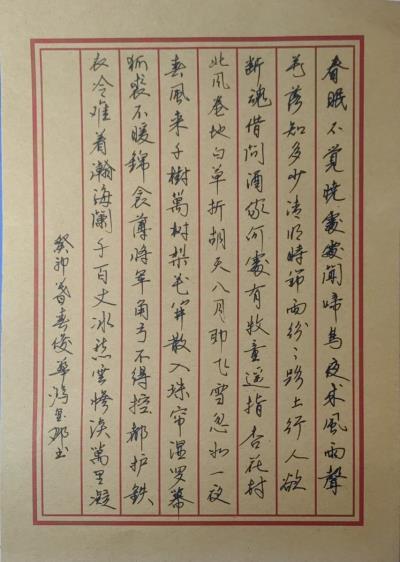 春眠不觉晓處處闻啼鸟夜来风雨聲
花落知多少清明时节雨纷々路上行人欲
断魂借问酒家何處有牧童遥指杏花村
北风卷地白草折胡天八月即飞雪忽如一夜
春風来千樹萬树梨花開散入珠帘湿罗幕
狐裘不暖錦衾薄将军角弓不得控都护鉄
衣冷难着瀚海阑干百丈冰愁雲惨淡萬里凝
癸卯暮春俊華书